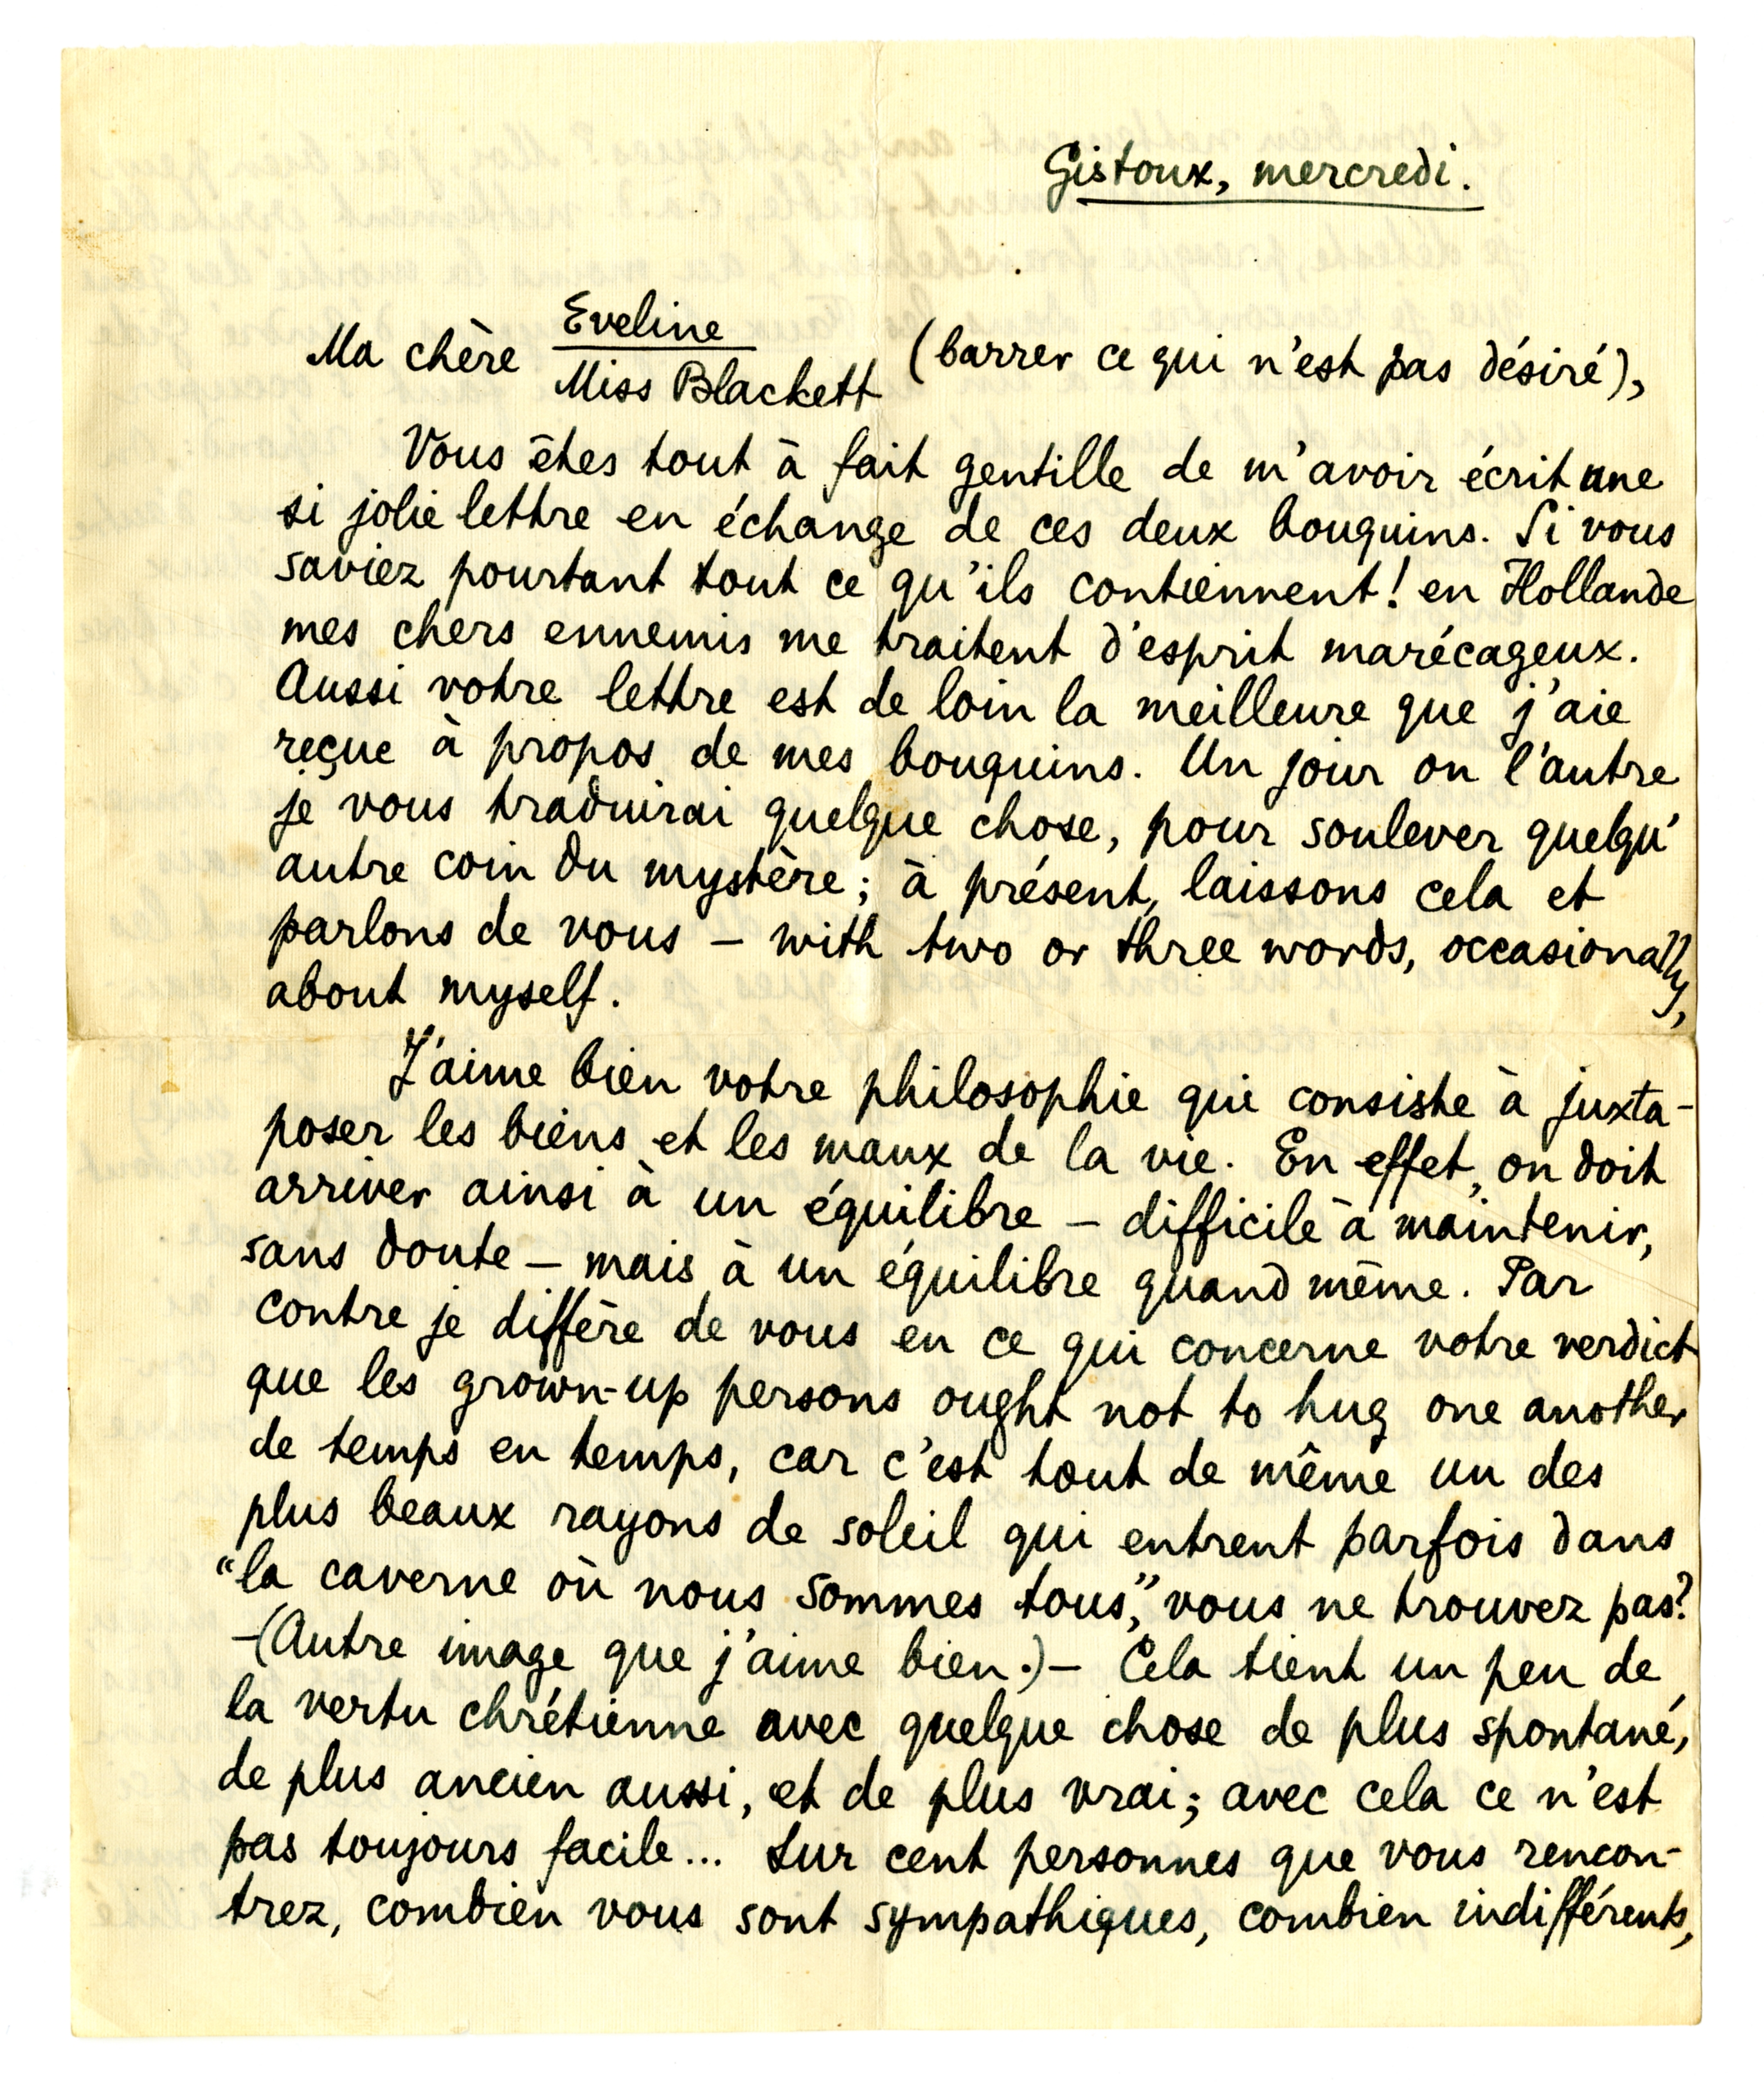 Gistoux, mercredi.
Ma chère Eveline
Miss Blackett (barrer ce qui n'est pas désiré),
Vous êtes tout à fait gentille de m'avoir écrit une
si jolie lettre en échange de ces deux bouquins. Si vous
saviez pourtant tout ce qu'ils contiennent! en Hollande
mes chers ennemis me traitent d'esprit marécageux.
Aussi votre lettre est de loin la meilleure que j'aie
reçue à propos de mes bouquins. Un jour ou l'autre
je vous traduirai quelque chose, pour soulever quelqu'
autre coin du mystère; à présent, laissons cela et
parlons de vous – with two or three words, occasionally,
about myself.
J'aime bien votre philosophie qui consiste à juxta-
poser les biens et les maux de la vie. En effet, on doit
arriver ainsi à un équilibre – difficile à maintenir,
sans doute – mais à un équilibre quand même. Par
contre je diffère de vous en ce qui concerne votre verdict
que les grown-up persons ought not to hug one another
de temps en temps, car c'est tout de même un des
plus beaux rayons de soleil qui entrent parfois dans
"la caverne où nous sommes tous," vous ne trouvez pas?
–(Autre image que j'aime bien.)– Cela tient un peu de
la vertu chrétienne avec quelque chose de plus spontané,
de plus ancien aussi, et de plus vrai; avec cela ce n'est
pas toujours facile... Sur cent personnes que vous rencon-
trez, combien vous sont sympathiques, combien indifférents,